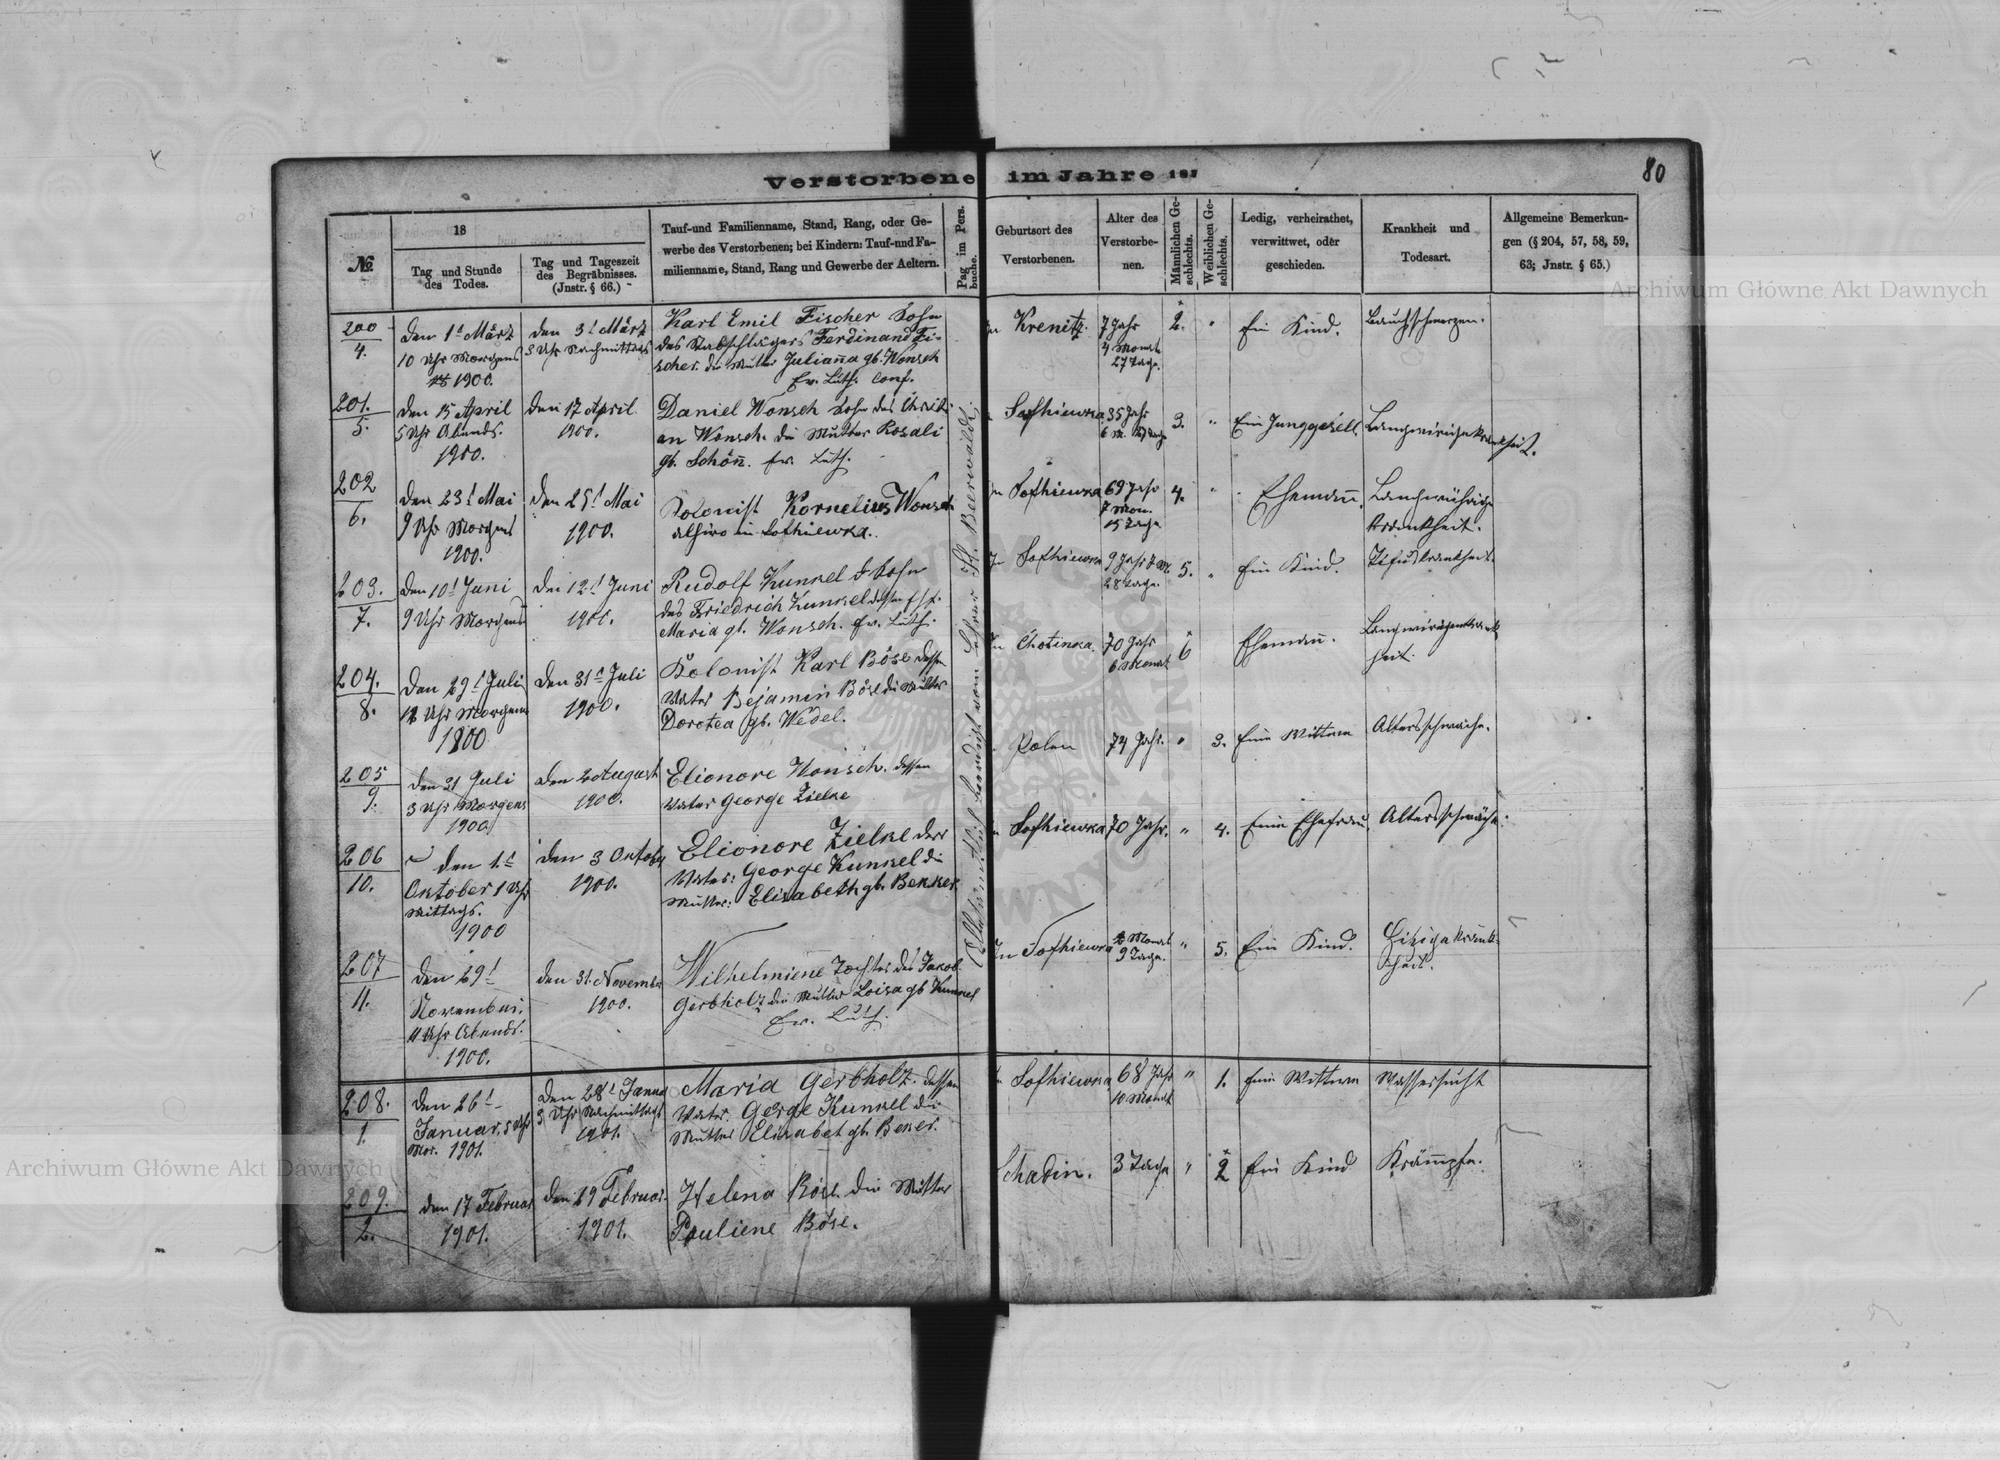 Verstorbene im Jahre 187
80
№
18
Tag und Stunde
des Todes.
Tag und Tageszeit
des Begräbnisses.
(Jnstr. § 66.)
Tauf-und Familienname, Stand, Rang, oder Ge-
werbe des Verstorbenen; bei Kindern: Tauf-und Fa-
milienname, Stand, Rang und Gewerbe der Aeltern.
Pag im Pers.
buche.
Geburtsort des
Verstorbenen.
Alter des
Verstorbe-
nen.
Männlichen Ge-
schlechts.
Weiblichen Ge-
schlechts.
Ledig, verheirathet,
verwittwet, oder
geschieden.
Krankheit und
Todesart.
Allgemeine Bemerkun-
gen (§ 204, 57, 58, 59,
63; Jnstr. § 65.)
200
4.
den 1t März
10 Uhr Morgens
1900.
den 3t März
3 Uhr Nachmittags
Karl Emil Fischer Sohn
des Ferdinand Fi-
scher. die Mutter Julianna gb. Wonsch
Ev. Luth. Conf.
Krenitz.
7 Jahr
4 Monat
27 Tage.
2.
Ein Kind.
Bauchschmerzen.
201.
5.
den 15 April
5 Uhr Abends.
1900.
den 17 April
1900.
Daniel Wonsch Sohn des Christi
an Wonsch. die Mutter Rosali
gb. Schönn. Ev. Luth.
Sofhiewka
35 Jahr
3.
Ein Junggesell.
202
6.
den 23t Mai
9 Uhr Morgens
1900.
den 25t Mai
1900.
Kolonist Kornelius Wonsch
alhiro in Sofhiewka.
In Sofhiewka
69 Jahr
7 Mon.
15 Tage
4.
Ehemann.
Krankheit.
203.
7.
den 10t Juni
9 Uhr Morgens
den 12t Juni
1900.
Rudolf Kunkel Sohn
des Friedrich Kunkel
Maria gb. Wonsch. Ev. Luth.
In Sofhiewka
9 Jahr
28 Tage.
5.
Ein Kind.
204.
8.
den 29t Juli
12 Uhr Morgens
1900
den 31t Juli
1900.
Kolonist Karl Böse dessen
Vater Bejamin Böse die Mutter
Dorotea gb. Wedel.
In Chotinka.
70 Jahr
6 Monat
6
Ehemann.
205
9.
den 21 Juli
3 Uhr Morgens
1900
den 2 August
1900.
Elionore Wonsch. dessen
Vater George Zielke
Polen
74 Jahr.
3.
Eine Wittwe
Altersschwäche.
206
10.
den 1t
Oktober 1 Uhr
Mittags.
1900
den 3 Oktober
1900.
Elionore Zielke der
Vater: George Kunkel die
Mutter: Elisabeth gb. Bekker.
Sofhiewka
70 Jahr.
4.
Eine Ehefrau
Altersschwäche.
207
11.
den 29t
November.
11 Uhr Abends.
1900.
den 31. November
1900.
Wilhelmiene Tochter des Jakob
Gerbholz die Mutter Loisa gb Kunkel
Ev. Luth.
In Sofhiewka
Monat
9 Tage.
5.
Ein Kind.
Hizige Krank-
heit.
208.
1.
den 26t
Januar, 5 Uhr
Mor. 1901.
den 28t Janua
3 Uhr Nachmittags
1901.
Maria Gerbholz. dessen
Vater George Kunkel die
Mutter Elisabet gb. Beker.
Sofhiewka
68 Jahr
10 Monat
1.
Eine Wittwe
Wassersucht
209.
2.
den 17 Februar
1901.
den 19 Februar
1901.
Helena Böse die Mutter
Pauliene Böse.
Schadin.
3 Tage
2
Ein Kind
Krämpfe.
Archiwum Główne Akt Dawnych
Archiwum Główne Akt Dawnych